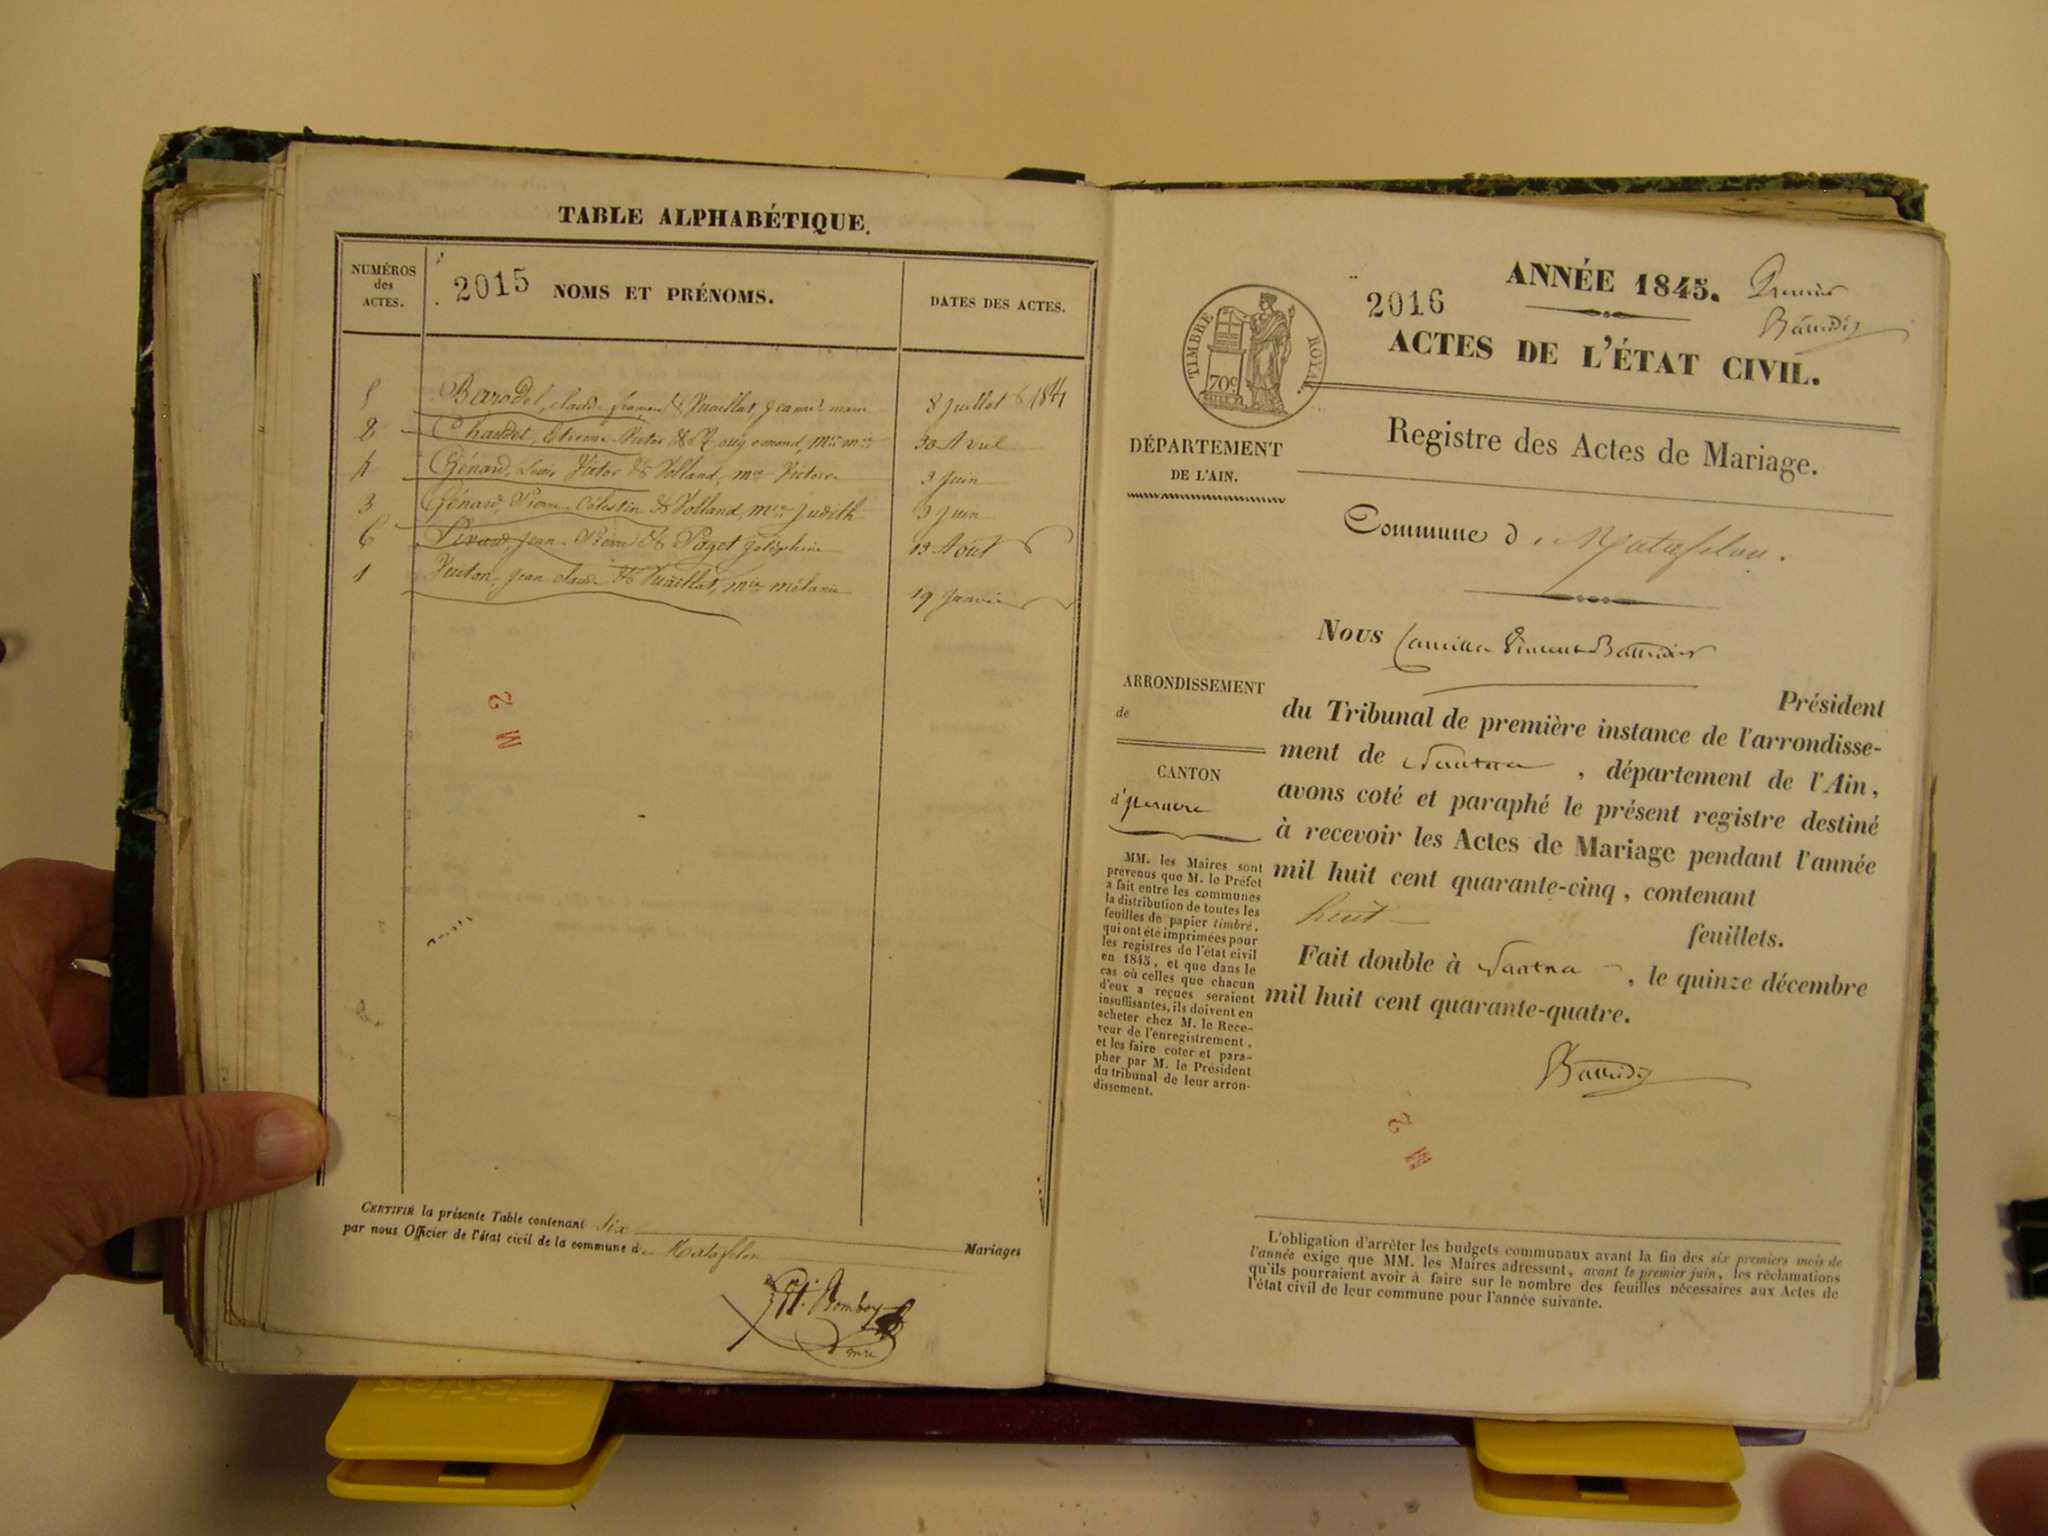 TABLE ALPHABÉTIQUE.
NUMÉROS
des
ACTES.
2015 NOMS ET PRÉNOMS.
DATES DES ACTES.
5 Barodet, claude françois & Vuaillat, jeanne marie 8 juillet 1844
2 Chardet, Etienne Victor & Rougemond, 30 Avril
4 Génard, Louis Victor & Volland, mie Victoire 3 juin
3 Génard, Pierre Célestin & Volland, mie judith 3 juin
6 jean Pierre & Paget joséphine 13 Août
1 jean claude & Vuaillat, mie mélanie 19 janvier
M 2
CERTIFIÉ la présente Table contenant Six Mariages
par nous Officier de l'état civil de la commune de Matafelon
Bomboy
maire
ANNÉE 1845.
Premier
2016
ACTES DE L'ÉTAT CIVIL.
TIMBRE ROYAL
70c
Registre des Actes de Mariage.
DÉPARTEMENT
DE L'AIN.
Commune d Matafelon.
Nous Camille Vincent
ARRONDISSEMENT
de
CANTON
d'izernore
Président
du Tribunal de première instance de l'arrondisse-
ment de Nantua, département de l'Ain,
avons coté et paraphé le présent registre destiné
à recevoir les Actes de Mariage pendant l'année
mil huit cent quarante-cinq, contenant
huit feuillets.
Fait double à Nantua, le quinze décembre
mil huit cent quarante-quatre.
MM. les Maires sont
prévenus que M. le Préfet
a fait entre les communes
la distribution de toutes les
feuilles de papier timbré,
qui ont été imprimées pour
les registres de l'état civil
en 1845, et que dans le
cas où celles que chacun
d'eux a reçues seraient
insuffisantes, ils doivent en
acheter chez M. le Rece-
veur de l'enregistrement,
et les faire coter et para-
pher par M. le Président
du tribunal de leur arron-
dissement.
M 2
L'obligation d'arrêter les budgets communaux avant la fin des six premiers mois de
l'année exige que MM. les Maires adressent, avant le premier juin, les réclamations
qu'ils pourraient avoir à faire sur le nombre des feuilles nécessaires aux Actes de
l'état civil de leur commune pour l'année suivante.